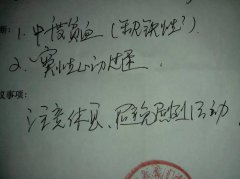 1. 中度贫血(缺铁性?)
2. 窦性心动过速
议事项:
注意休息、避免剧烈活动